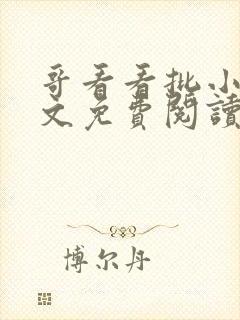 哥看看批小
文免費閱讀
博尔丹